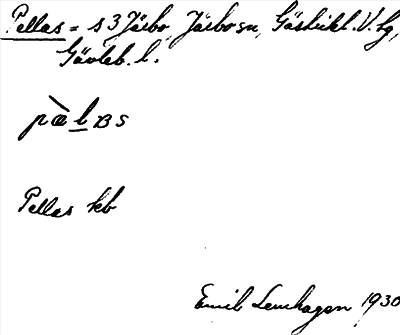 Pellas = s 3 Järbo, Järbo sn, Gästrikl. V. tg,
Gävleb. l.
pæ̀lɐs
Pellas kb
Emil Lenhagen 1930